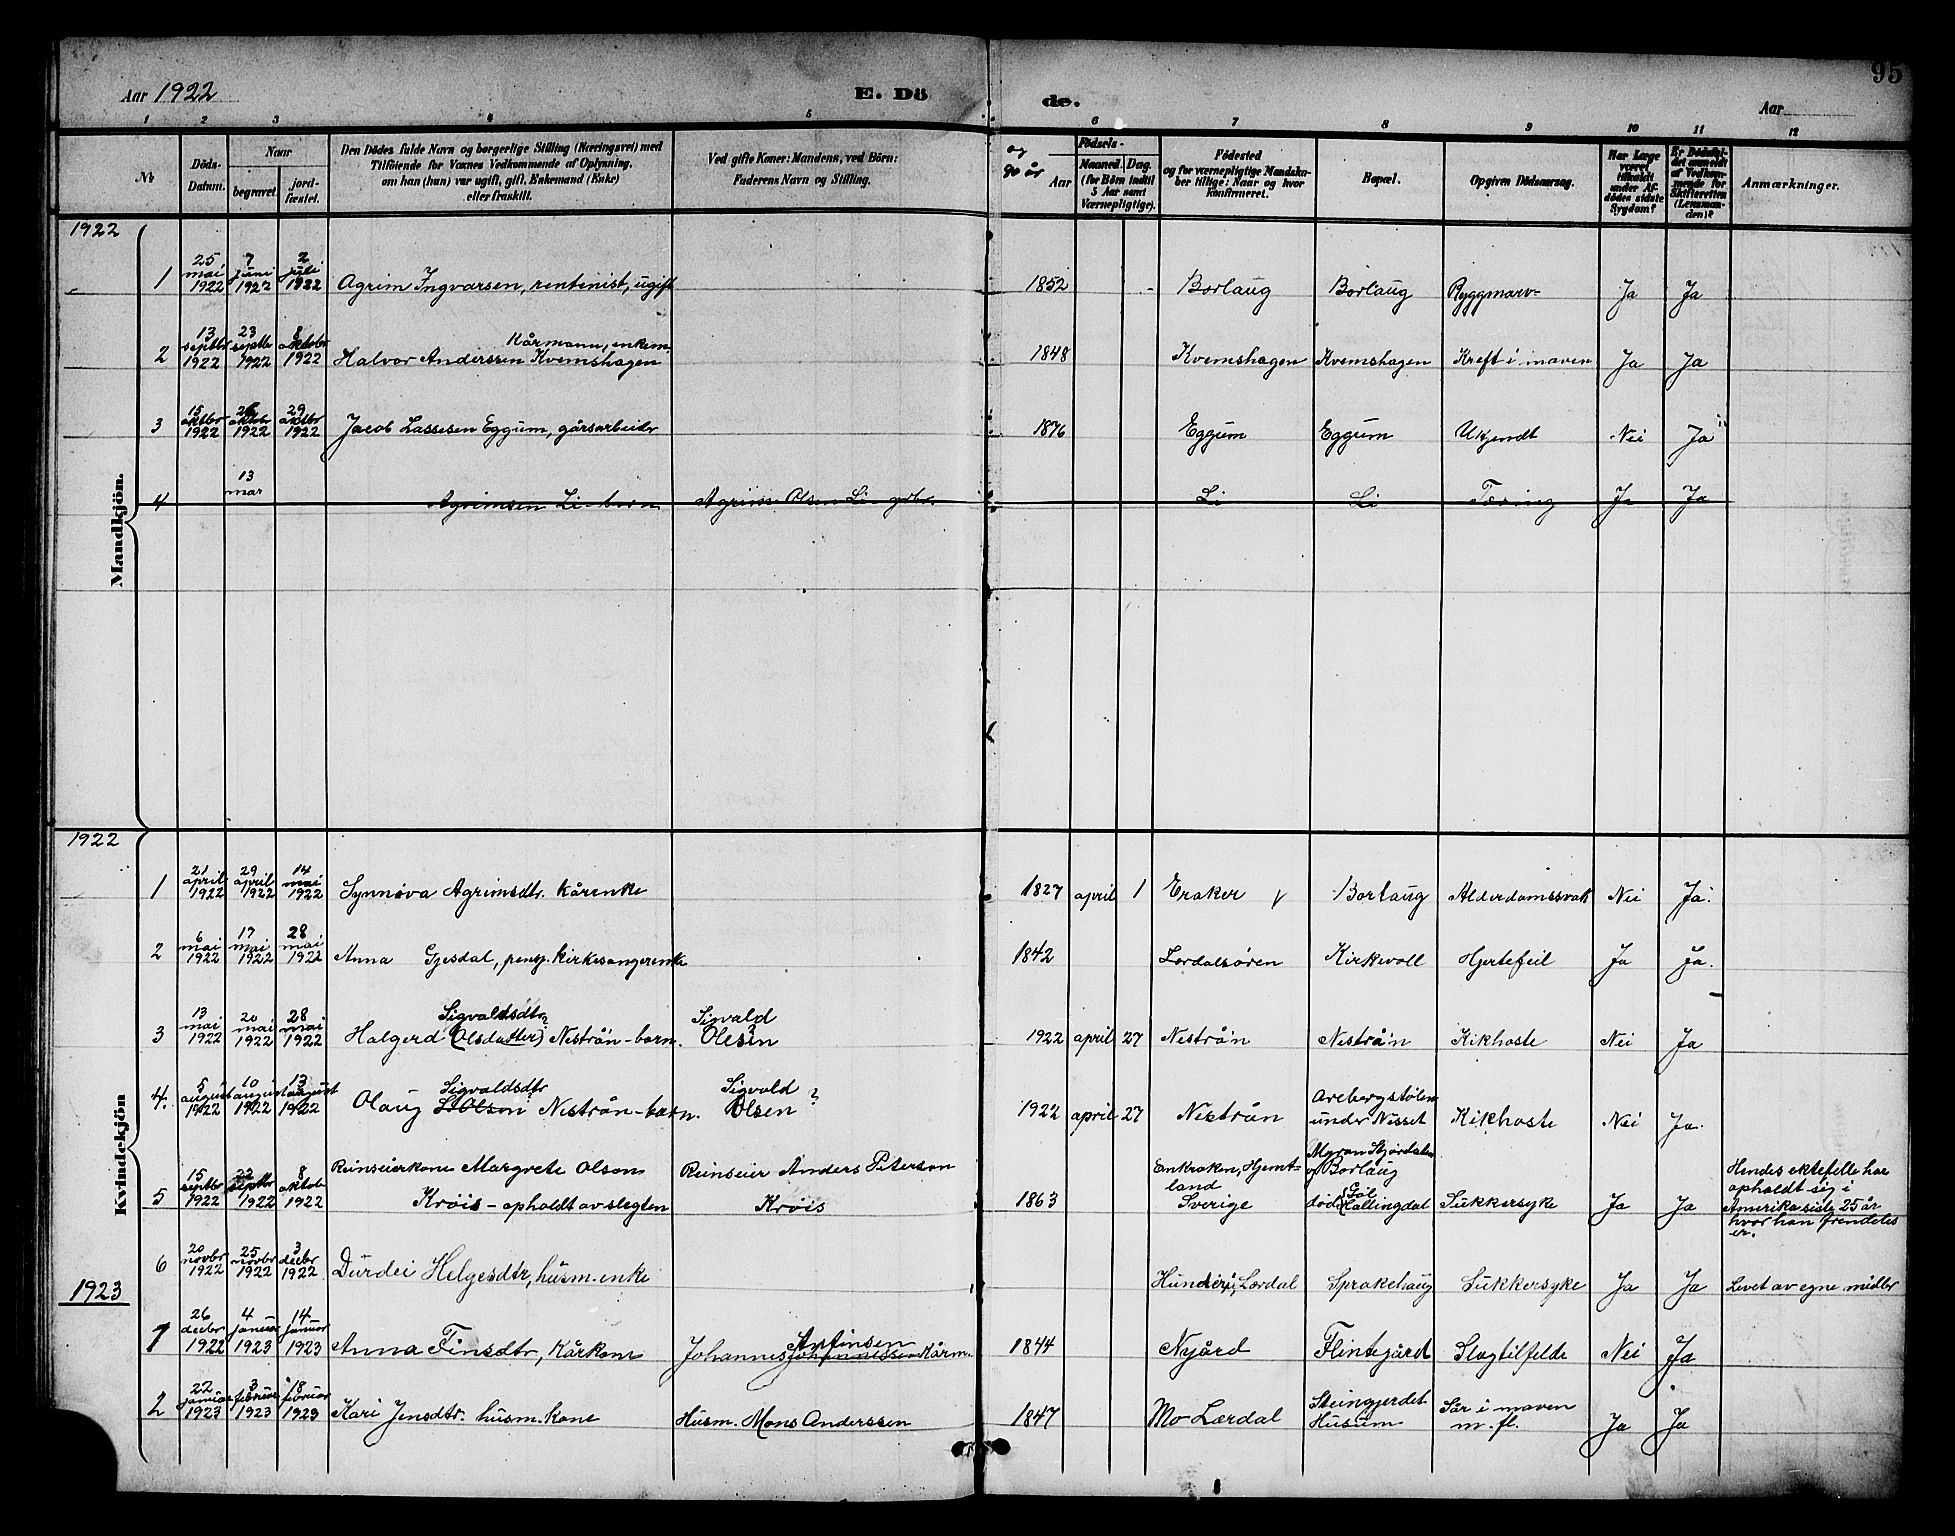 95
Aar 1922
E. Dö
de.
Aar
1 2 3 4 5 6 7 8 9 10 11 12
№
Döds-
Datum.
Naar
begravet.
jord-
fæstet.
Den Dödes fulde Navn og borgerlige Stilling (Næringsvei) med
Tilföiende for Voxnes Vedkommende af Oplysning,
om han (hun) var ugift, gift, Enkemand (Enke)
eller fraskilt.
Ved gifte Koner: Mandens, ved Börn:
Faderens Navn og Stilling.
og
90 år
Födsels-
Aar
Maaned. Dag.
(for Börn indtil
5 Aar samt
Værnepligtige).
Födested
og for værnepligtige Mandska-
ber tillige: Naar og hvor
konfirmeret.
Bopæl.
Opgiven Dödsaarsag.
Har Læge
været
tilkaldt
under Af-
dödes sidste
Sygdom?
Er Dödsfal-
det anmeldt
af Vedkom-
mende for
Skifteretten
(Lensman-
den)?
Anmærkninger.
Mandkjön.
1922
1 25 mai 1922 7 juni 1922 2 juli 1922 Agrim Ingvarsen, rentenist, ugift 1852 - Borlaug Borlaug Ryggmarv- Ja Ja
2 13 septbr 1922 23 septbr 1922 8 oktobr 1922 Halvor Anderssen Kvemshagen Kårmann, enkem. 1848 Kvemshagen Kvemshagen Kreft i maven Ja Ja
3 15 oktbr 1922 26 oktobr 1922 29 oktbr 1922 Jacob Lassesen Eggum, gårsarbeidr 1876 Eggum Eggum Ukjendt Nei Ja
4 13 mar Agrimsen Li- barn Agrim Olsen Li- Li Li Tæring Ja Ja
Kvindekjön
1922
1 21 april 1922 29 april 1922 14 mai 1922 Synnøva Agrimsdtr. kårenke 1827 april 1 Eraker Borlaug Alderdomssvak Nei Ja.
2 6 mai 1922 17 mai 1922 28 mai 1922 Anna Gjesdal, pensj. kirkesangerenke 1842 Lærdalsøren Kirkevoll Hjertefeil Ja Ja.
3 13 mai 1922 20 mai 1922 28 mai 1922 Halgerd Sigvaldsdtr? (Olsdatter) Nistrån-barn. Sigvald Olsen? 1922 april 27 Nistrån Nistrån Kikhoste Nei Ja
4. 5 august 1922 10 august 1922 13 august 1922 Olaug Sigvaldsdtr Olson Nistrån-barn. Sigvald Olsen? 1922 april 27 Nistrån under Nisset Kikhoste Nei Ja.
5 15 septbr 1922 22 septbr 1922 8 oktobr 1922 Reinseierkone Margrete Olson
Krøis - opholdt av slegten Reinseier Anders Peterson
Krøis 1863 Enkroken, Hjemt-
land
Sverige
og Borlaug
død Gol Hallingdal Sukkersyke Ja Ja Hendes ektefelle har
opholdt sig i
Amerika siste 25 år
hvor han fremdeles
er.
6 20 novbr 1922 25 novbr 1922 3 decbr 1922 Durdei Helgesdtr, husm. enke Hunderi, Lærdal Sprakehaug Sukkersyke Ja Ja Levet av egne midler
1923
1 26 decbr 1922 4 januar 1923 14 januar 1923 Anna Finsdtr, Kårkone Johannes Antinsen Kårm. 1844 Nyård Flintegård Slagtilfelde Nei Ja
2 22 januar 1923 3 februar 1923 18 februar 1923 Kari Jensdtr. husm. kone Husm. Mons Anderssen 1847 Mo- Lærdal Steingjerdet
Husum Sår i maven
m. fl. Ja Ja